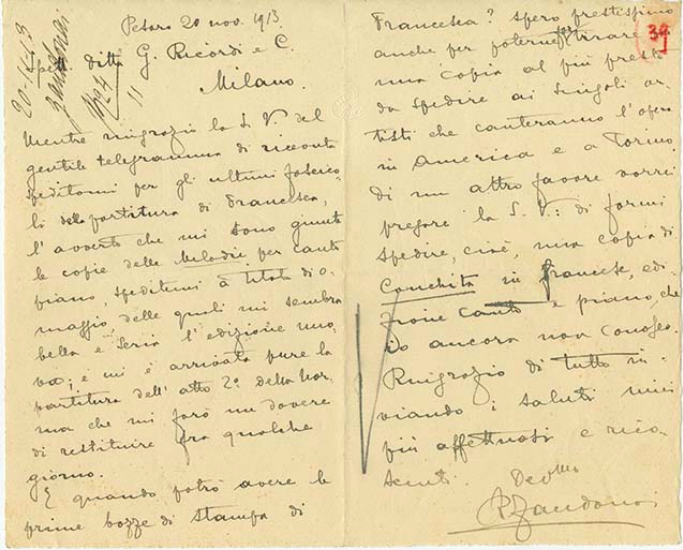 Pesaro 20 nov. 1913
20-11-13
Zandonai
Spett. ditta G. Ricordi e C.
11
Milano.
Mentre ringrazio la S. V. del
gentile telegramma di ricevuta
speditomi per gli ultimi fascico-
li della partitura di Francesca,
l'avverto che mi sono giunte
le copie delle Melodie per canto
piano, speditemi a titolo di o-
maggio, delle quali mi sembra
bella e seria l'edizione nuo-
va; e mi è arrivata pure la
partitura dell'atto 2º della Nor-
ma che mi farò un dovere
di restituire fra qualche
giorno.
E quando potrò avere le
prime bozze di stampa di
Francesca? Spero prestissimo
anche per poterne tirare
una copia al più presto
da spedire ai singoli ar-
tisti che canteranno l'opera
in America e a Torino.
Di un altro favore vorrei
pregare la S. V.: di farmi
spedire, cioè, una copia di
Conchita in francese, edi-
zione canto e piano, che
io ancora non conosco.
Ringrazio di tutto in-
viando i saluti miei
più affettuosi e rico-
scenti.
Devmo
RZandonai